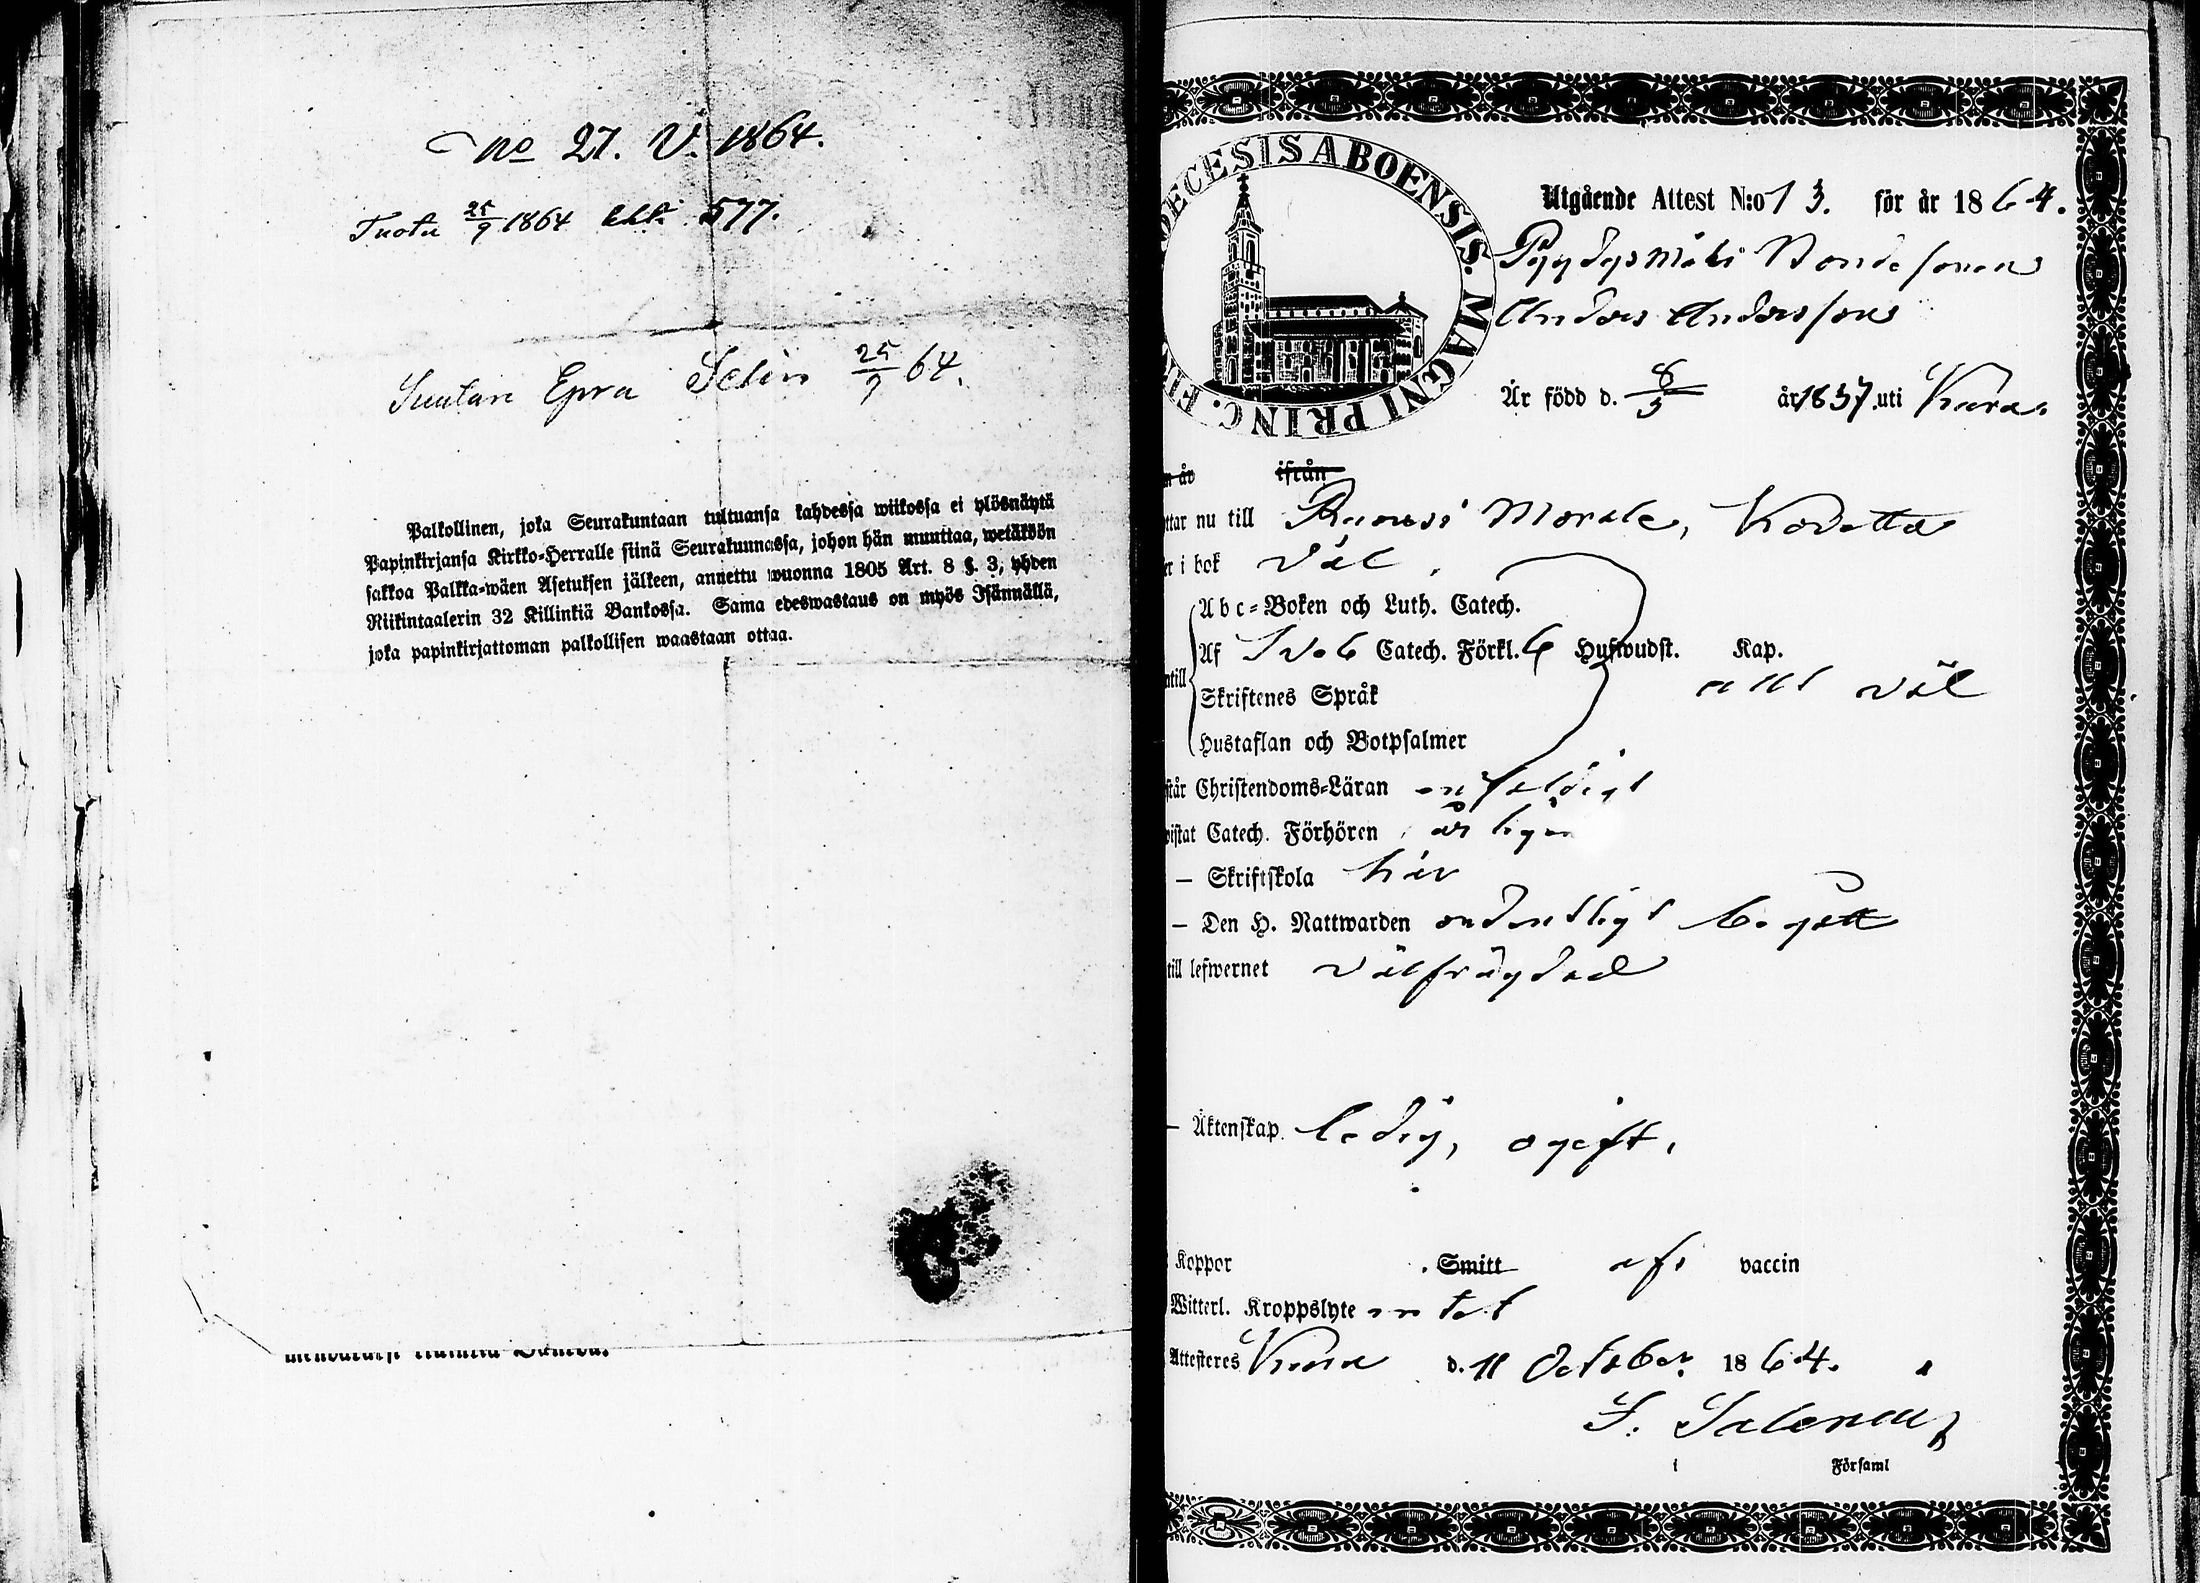 No 27. V. 1864.
Tuotu 25/9 1864 577.
Suutari Epra Selin 25/9 64.
Palkollinen, joka Seurakuntaan tultuansa kahdessa wiikossa ei ylösnäytä
Papinkirjansa Kirkko-Herralle siinä Seurakunnassa, johon hän muuttaa, wetäköön
sakkoa Palkka-wäen Asetuksen jälkeen, annettu wuonna 1805 Art. 8 §. 3, yhden
Riikintaalerin 32 Killinkiä Bankossa. Sama edeswastaus on myös Isännällä,
joka papinkirjattoman palkollisen waastaan ottaa.
DECESIS ABOENSIS. MAGNI PRINC.
Utgående Attest N:o 13. för år 1864.
Bondesonen
Anders Andersson
Är född d. 6/5 år 1837. uti Kiura.
n år ifrån
ttar nu till
er i bok väl.
Abc-Boken och Luth. Catech.
Af Sveb Catech. Förkl. 6 Hufwudst. Kap.
ntill Skriftenes Språk allt väl
Hustaflan och Botpsalmer
står Christendoms-Läran enfaldigt
wistat Catech. Förhören årligen
— Skriftskola här
— Den H. Nattwarden ordentligt begått
till lefwernet välfrägdad
— Äktenskap. ledig, ogift.
Koppor Smitt af vaccin
Witterl. Kroppslyte intet
Attesteres Kiura d. 11 October 1864.
i Församl